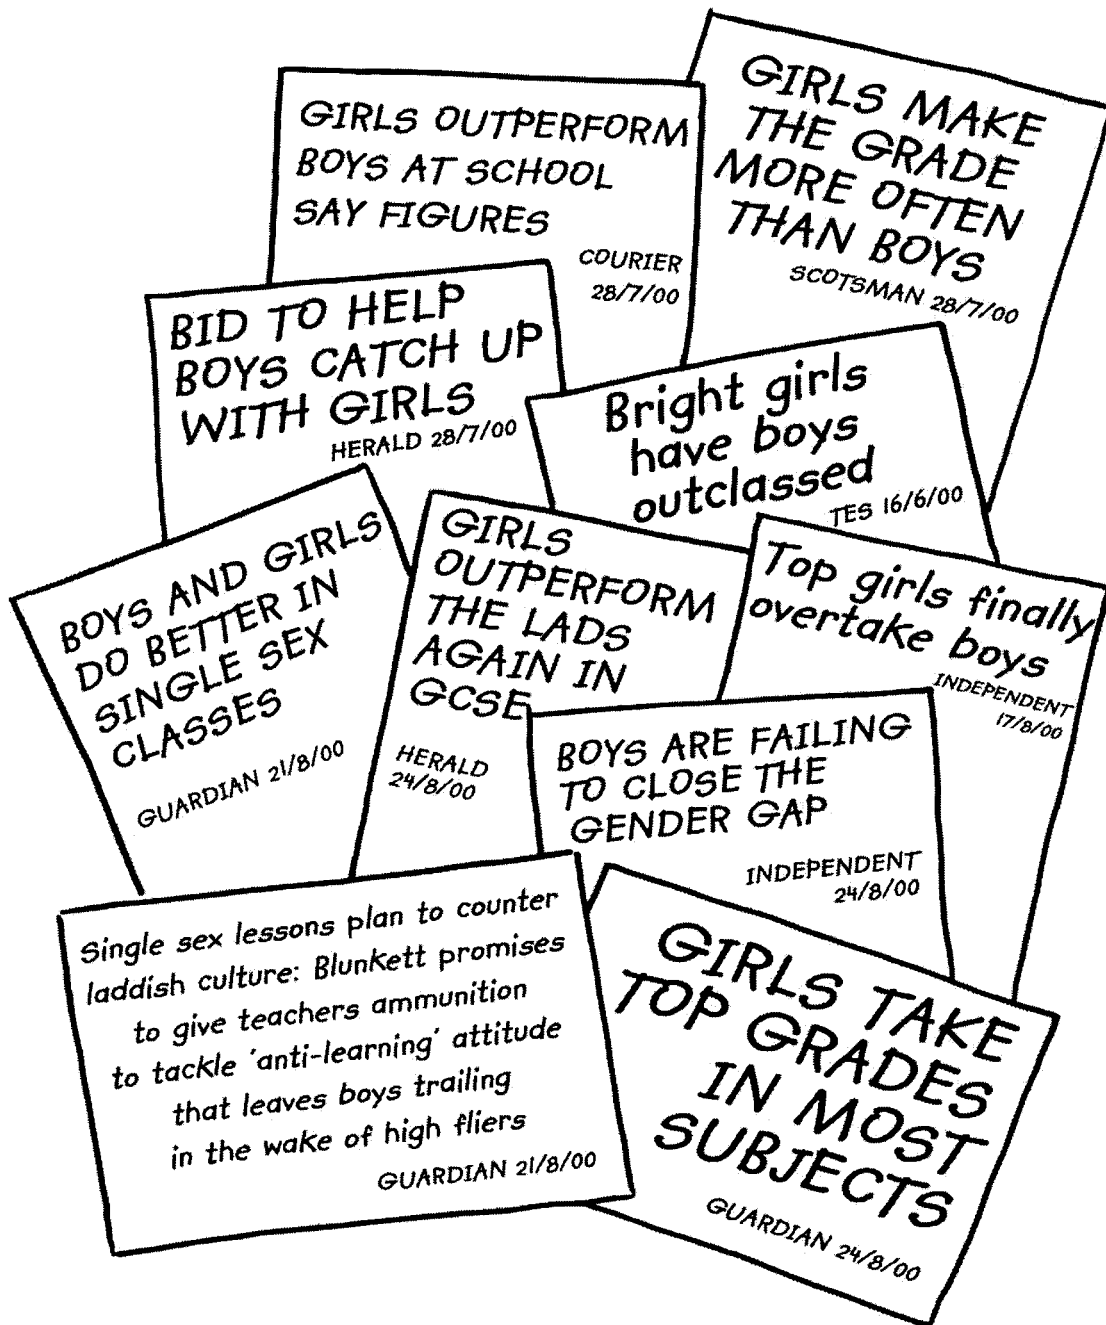 GIRLS MAKE
THE GRADE
MORE OFTEN
THAN BOYS
SCOTSMAN 28/7/00
GIRLS OUTPERFORM
BOYS AT SCHOOL
SAY FIGURES
COURIER
28/7/00
BID TO HELP
BOYS CATCH UP
WITH GIRLS
HERALD 28/7/00
Bright girls
have boys
outclassed
TES 16/6/00
BOYS AND GIRLS
DO BETTER IN
SINGLE SEX
CLASSES
GUARDIAN 21/8/00
GIRLS
OUTPERFORM
THE LADS
AGAIN IN
GCSE
HERALD
24/8/00
Top girls finally
overtake boys
INDEPENDENT
17/8/00
BOYS ARE FAILING
TO CLOSE THE
GENDER GAP
INDEPENDENT
24/8/00
Single sex lessons plan to counter
laddish culture: Blunkett promises
to give teachers ammunition
to tackle 'anti-learning' attitude
that leaves boys trailing
in the wake of high fliers
GUARDIAN 21/8/00
GIRLS TAKE
TOP GRADES
IN MOST
SUBJECTS
GUARDIAN 24/8/00